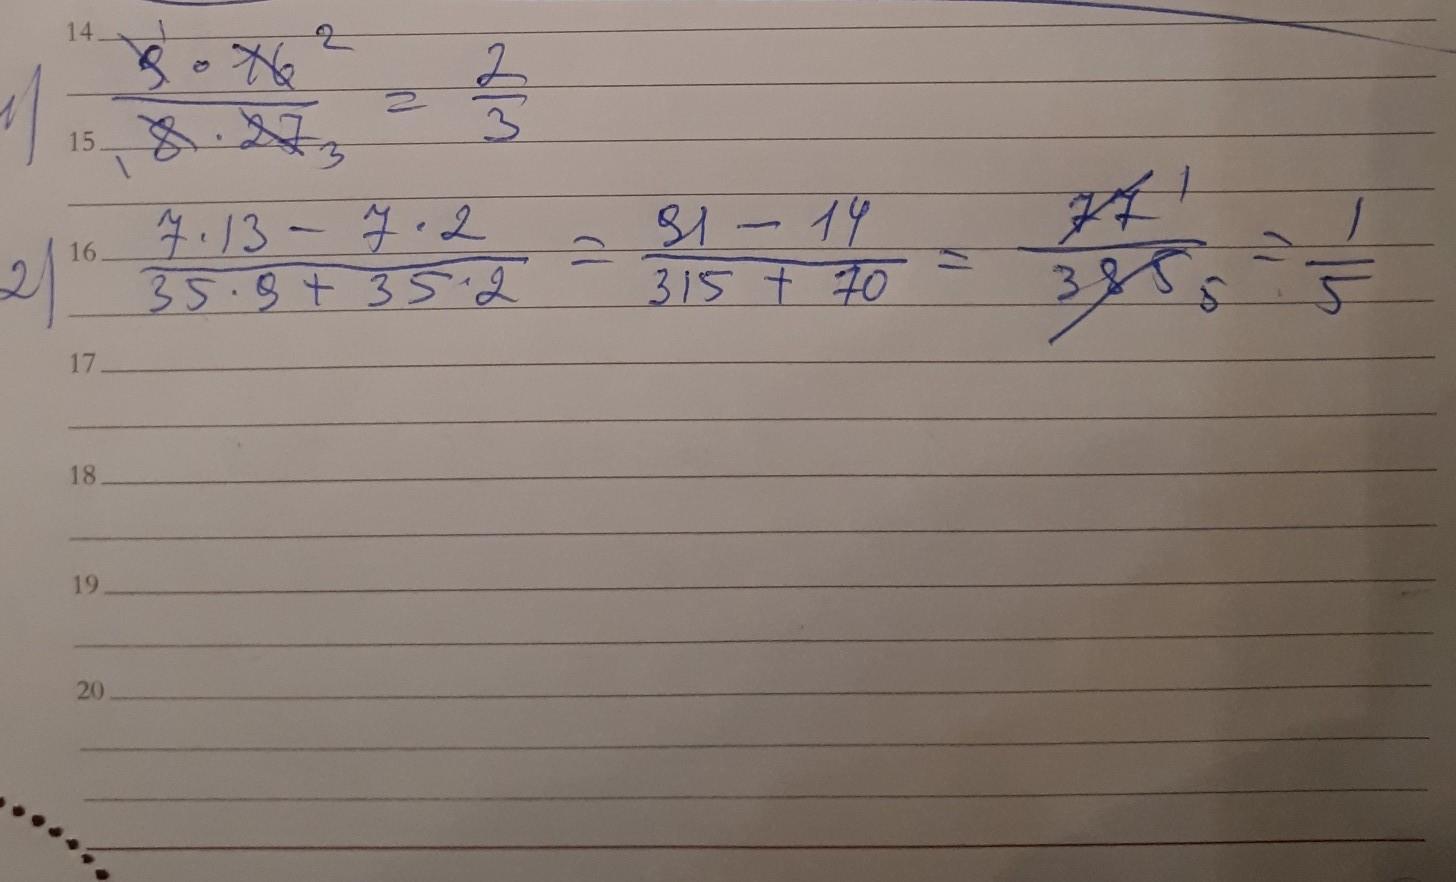 14
1) 9¹ · 16² / ₁8 · 27₃ = 2/3
15
2) 7·13 - 7·2 / 35·9 + 35·2 = 91 - 14 / 315 + 70 = 77¹ / 385₅ = 1/5
16
17
18
19
20